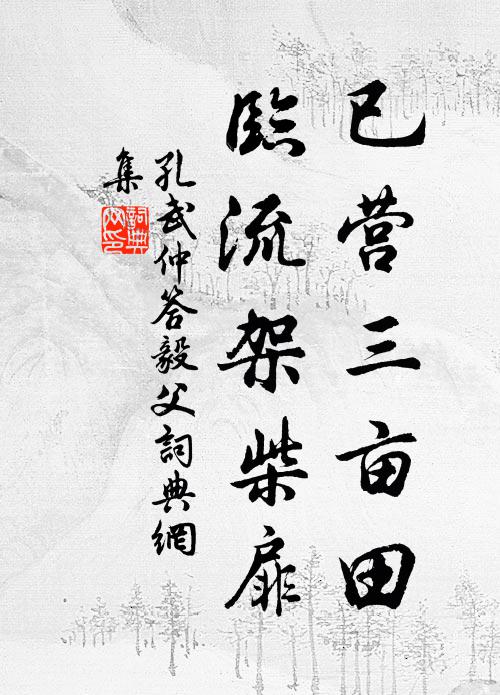 已营三亩田
臨流架柴扉
孔武仲答毅父詞典網
集
詞典
网印